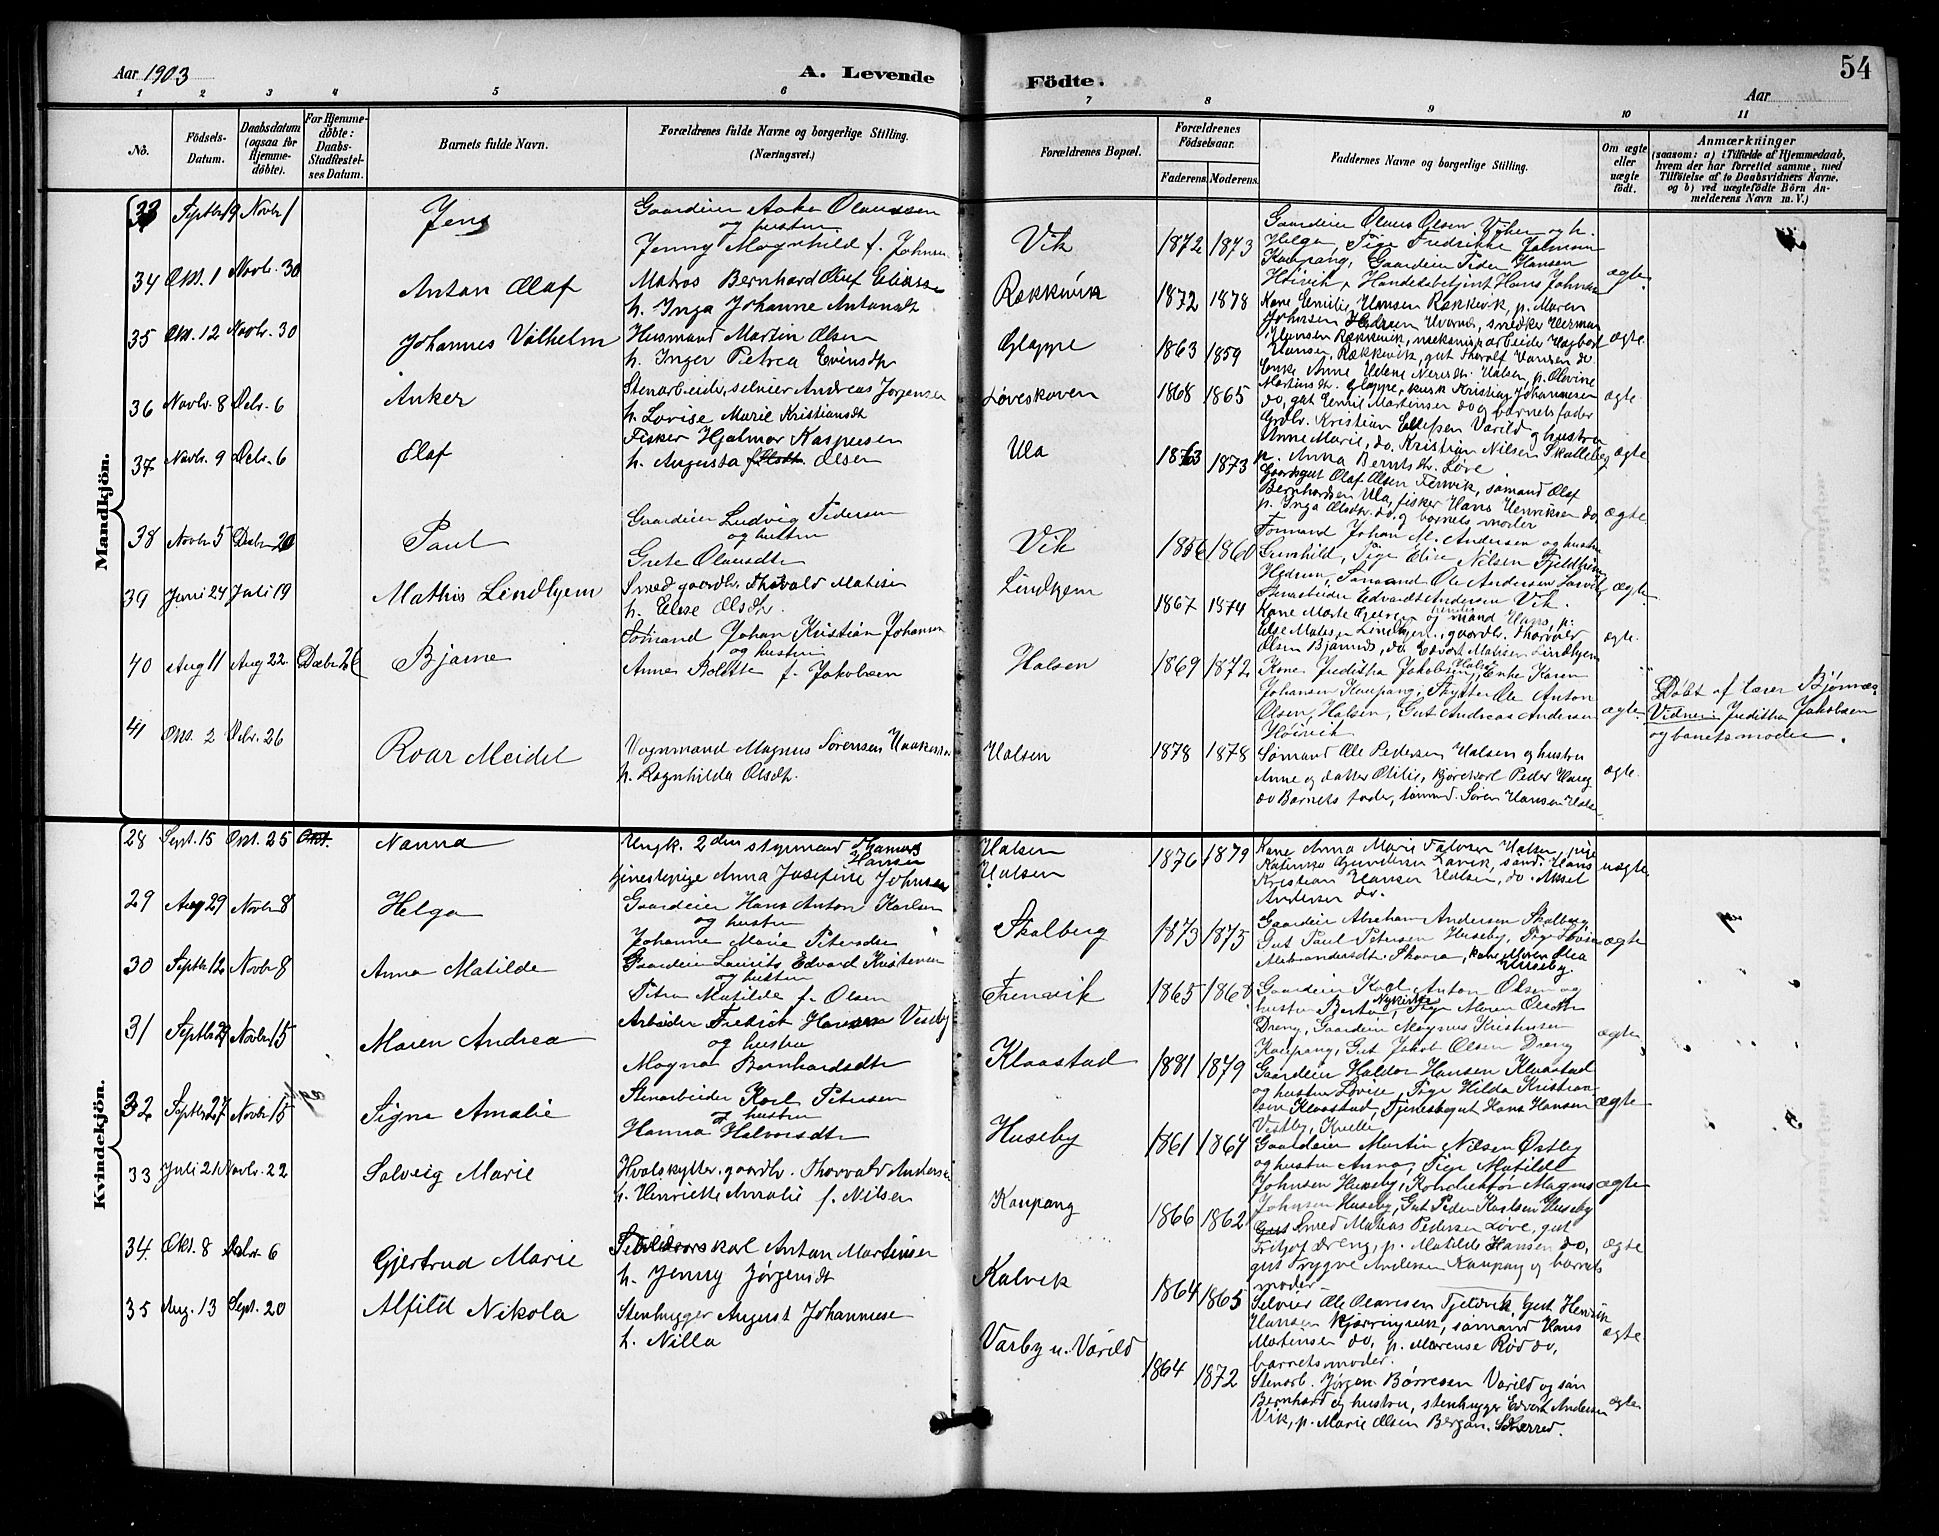 Aar 1903 A. Levende Födte. Aar 54
1 2 3 4 5 6 7 8 9 10 11
No. Födsels-Datum. Daabsdatum (ogsaa for Hjemmedöbte). For Hjemmedöbte: Daabs-Stadfæstelses Datum. Barnets fulde Navn. Forældrenes fulde Navne og borgerlige Stilling. (Næringsvei.) Forældrenes Bopæl. Forældrenes Födselsaar. Faderens. Moderens. Faddernes Navne og borgerlige Stilling. Om ægte eller uægte födt. Anmærkninger (saasom: a) i Tilfælde af Hjemmedaab, hvem der har forrettet samme, med Tilföielse af to Daabsvidners Navne, og b) ved uægtefödte Börn Anmelderens Navn m. V.)
Mandkjön.
33 Septbr 19 Novbr 1 Jens Gaardeier Anker Olaussen
og hustru
Jenny Magnhild f. Johnsen Vik 1872 1873 Gaardeier Olaus Olsen Viken og h.
Helga, Pige Fredrikke Jakman
Kaupang, Gaardeier Peder Hansen
Høivik, Handelsbetjent Hans Johnsen ægte
34 Okt. 1 Novbr. 30 Anton Olaf Matros Bernhard Olaf Eliasse
h. Inga Johanne Antonsdt Rækkevik 1872 1878 Kone Emilie Hansen Rækkevik, p. Maren
Johnsen Hedrum, smed Herman
Hansen Rækkevik, mekanisk arbeider Hagbart
Hansen, Rækkevik, gut Thoralf Hansen do. ægte
35 Okt. 12 Novbr. 30 Johannes Vilhelm Husmand Martin Olsen
h. Inger Petrea Evensdtr Gloppe 1863 1859 Enke Anne Helene Halsen, p. Olovine
Martinsdt. Gloppe, kusk Kristian Johannesen
do, gut Emil Martinsen do og barnets fader ægte
36 Novbr. 8 Debr. 6 Anker Stenarbeider, selveier Andreas Jorgensen
h. Lovise Marie Kristiansdt Løveskoven 1868 1865 Grdbr. Kristian Ellefsen Varild og hustru
Anne Marie, do. Kristian Nilsen Skalleberg
p. Anna Berntsdtr. Løve ægte
37 Novbr. 9 Debr. 6 Olaf Fisker Hjalmar Kaspersen
h. Augusta f. Olsen Ula 1863 1873 Gaardsgut Olaf Olsen Fervik, sømand Olaf
Bernhardsen Ula, fisker Hans Henriksen do,
p. Inga Olsdtr. do. og barnets moder ægte
38 Novbr 5 Decbr 20 Paul Gaardeier Ludvig Pedersen
og hustru
Grete Olausdtr Vik 1856 1860 Formand Johan M. Andersen og hustru
Gunhild, Pige Elise Nilsen Fjeldhim
Hedrum, Sømand Ole Andersen Larvik
Stenarbeider Edvardt Andersen Vik. ægte
39 Juni 27 Juli 19 Mathis Lindhjem Smed gaardbr. Thorvald Matisen
h. Elise Olsdtr. Lindhjem 1867 1874 Kone Marte og mand Hans, p.
Else Matisen Lindhjem, gaardbr. Thorvald
Olsen Bjønnes, do. Edvart Matisen Lindhjem ægte
40 Aug 11 Aug 22. Decbr 26 Bjarne Sømand Johan Kristian Johansen
og hustru
Anne Bolette f. Jakobsen Halsen 1869 1872 Kone Jreditha Jakobsen, Halsen, Enke Karen
Johansen Kaupang, Skytter Ole Anton
Olsen, Halsen, Gut Andreas Andersen
Høivik ægte. Døbt af lærer Bjønnes
Vidner: Jreditha Jakobsen
og barnets moder.
41 Okt. 2 Debr. 26 Roar Meidel Vognmand Magnus Sørensen Haakensen
h. Ragnhilda Olsdtr. Halsen 1878 1878 Sømand Ole Pedersen Halsen og hustru
Anne og datter Otilie, kjørekarl Peder
do Barnets fader, sømand Søren Hansen Halsen ægte.
Kvindekjön.
28 Sept. 15 Okt. 25 Nanna Ungk. 2den styrmand Thomas
Hansen
tjenestepige Anna Josefine Johnsen Halsen
Halsen 1876 1879 Kone Anna Marie Halsen, pige
Katinka Gundersen Larvik, sømd. Hans
Kristian Hansen Halsen, do. Aksel
Andersen do. uægte
29 Aug 29 Novbr 8 Helga Gaardeier Hans Anton Karlsen
og hustru
Johanne Marie Petersdtr Skalberg 1873 1875 Gaardeier Abraham Andersen Skalberg,
Gut Paul Petersen Huseby, Pige Lovise
Aleksandersdt. Skaara, kone Maren Olea
Huseby ægte
30 Septbr 12 Novbr 8 Anna Matilde Gaardeier Laurits Edvard Kristensen
og hustru
Petra Matilde f. Olsen Fremvik 1865 1868 Gaardeier Karl Anton Olsen og
hustru Berta Nykirke, Pige Maren Olsdtr
Dreng, Gaardeier Magnus Kristensen
Kaupang, Gut Jakob Olsen Dreng ægte
31 Septbr 27 Novbr 15 Maren Andrea Arbeider Fredrik Hansen Vestby
og hustru
Magna Bernhardsdtr Klaastad 1881 1879 Gaardeier Haldor Hansen Klaastad
og hustru Lovise, Pige Hilda Kristiansen
Klaastad, Tjenestegut Hans Hansen
Vestby, Kvelle ægte
32 Septbr 27 Novbr 15 Signe Amalie Stenarbeider Karl Petersen
og hustru
Hanna Halvorsdtr Huseby 1861 1864 Gaardeier Martin Nilsen Østby
og hustru Anna, Pige Matilde
Johnsen Huseby, Konduktør Magnus
Johnsen Huseby, Gut Peder Karlsen Huseby ægte
33 Juli 21 Novbr. 22 Solveig Marie Hvalskytter, gaardbr. Thorvald Andersen
h. Henriette Amalie f. Nilsen Kaupang 1866 1862 Smed Matias Pedersen Løve, gut
Fritjof Dreng, p. Matilde Hansen do,
gut Trygve Andersen Kaupang og barnets
moder ægte
34. Okt. 8 Debr. 6 Gjertrud Marie Anton Martinsen
h. Jenny Jørgensdt Kalvik 1864 1865 Selveier Ole Olavesen Fjeldvik, gut Henrik
Hansen Kjærringvik, sømand Hans
Martinsen do, p. Marense Rød do,
barnets moder. ægte
35 Aug. 13 Sept. 20 Alfild Nikola Stenhugger August Johannese
h. Nilla Varby u. Varild 1864 1872 Stenarb. Jørgen Børresen Varild og søn
Bernhard og hustru, stenhugger Edvart Andersen
Vik, p. Marie Olsen Bergan. Skærred. ægte